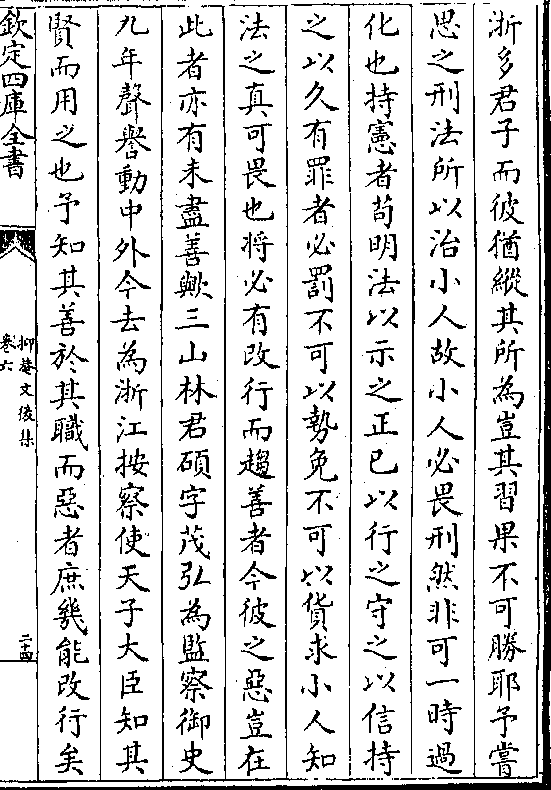 浙多君子而彼猶縱其所為豈其習果不可勝耶予嘗
思之刑法所以治小人故小人必畏刑然非可一時過
化也持憲者苟明法以示之正已以行之守之以信持
之以久有罪者必罰不可以勢免不可以貨求小人知
法之真可畏也将必有改行而趨善者今彼之惡豈在
此者亦有未盡善歟三山林君碩字茂弘為監察御史
九年聲譽動中外今去為浙江按察使天子大臣知其
賢而用之也予知其善於其職而惡者庶幾能改行矣
欽定四庫全書
抑菴文後集
卷六
二十四